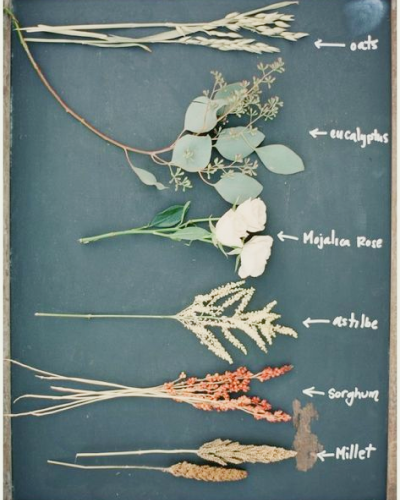 oats
eucalyptus
Mojalica Rose
astilbe
sorghum
Millet